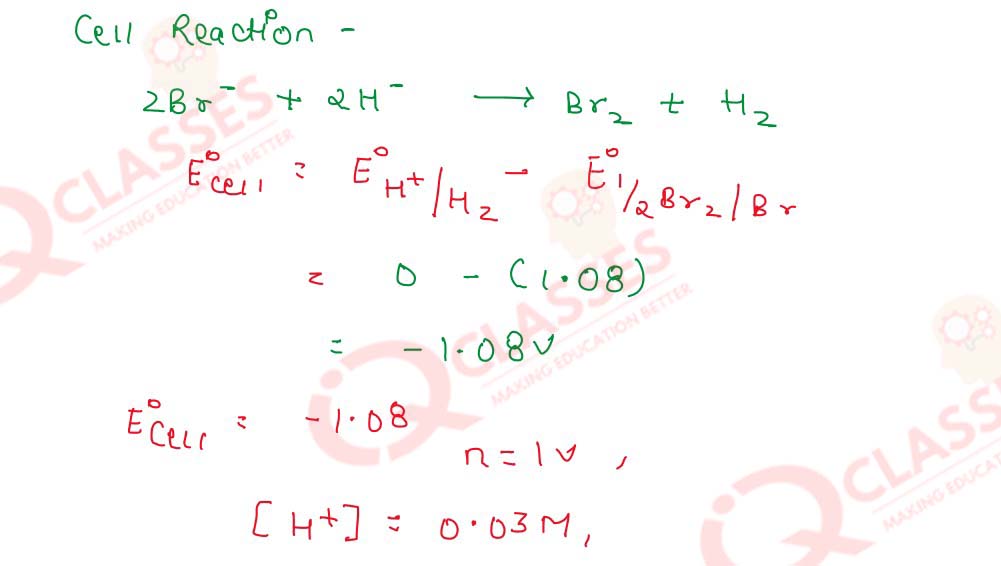 Cell Reaction -
2Br⁻ + 2H⁻ → Br₂ + H₂
E°cell = E°H⁺/H₂ - E°1/2Br₂/Br
= 0 - (1.08)
= -1.08v
E°Cell = -1.08
n = 1v,
[H⁺] = 0.03M,
IQ CLASSES
MAKING EDUCATION BETTER
IQ CLASSES
MAKING EDUCATION BETTER
IQ CLASSES
MAKING EDUCATION